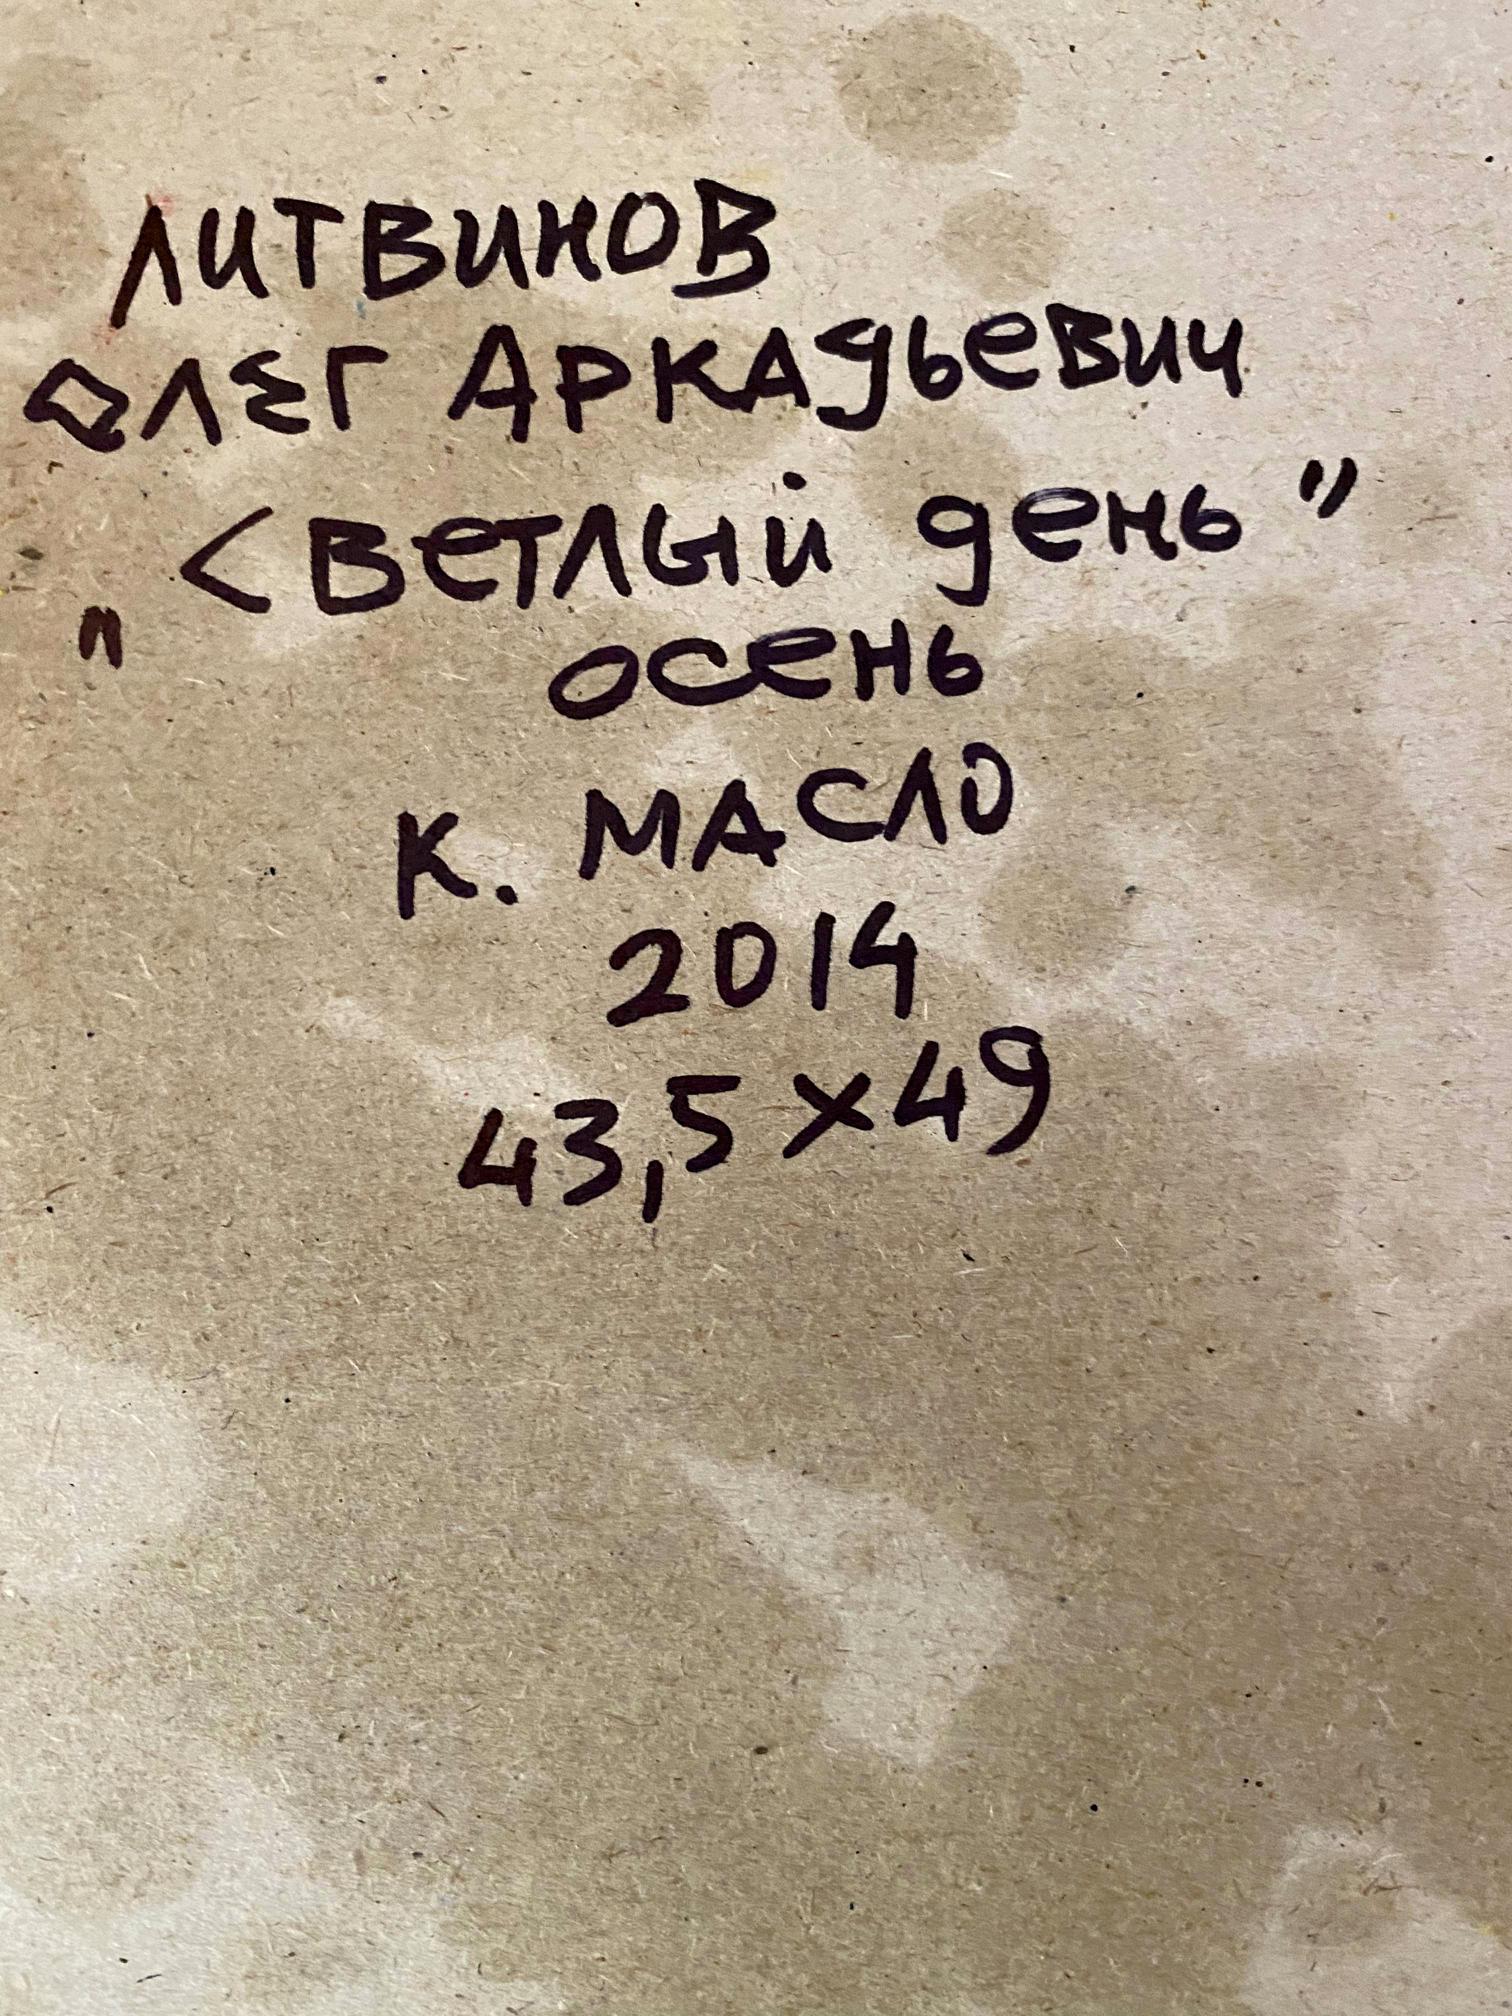 ЛИТВИНОВ
ОЛЕГ АРКАДЬЕВИЧ
"СВЕТЛЫЙ ДЕНЬ"
ОСЕНЬ
К. МАСЛО
2014
43,5×49